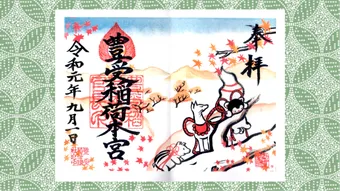 奉拝
豊受稲荷本宮
令和元年九月一日